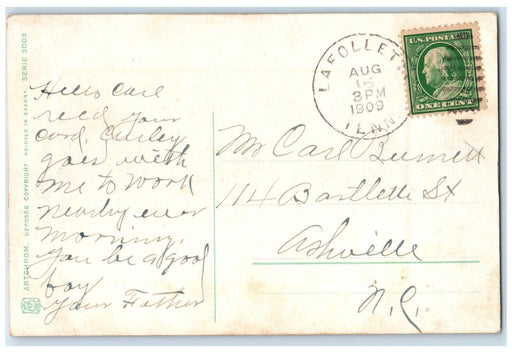 Hello Carl
recd your
card, Curley
goes with
me to work
nearly ever
morning.
You be a good
boy
Your Father
LAFOLLETTE
AUG
3PM
1909
TENN
U.S. POSTAGE
ONE CENT
Mr Carl Burnett
114 Bartlett St
Ashville
N.C.
ARTCHROM. DEPOSÉE COPYRIGHT PRINTED IN SAXONY SERIE 3003